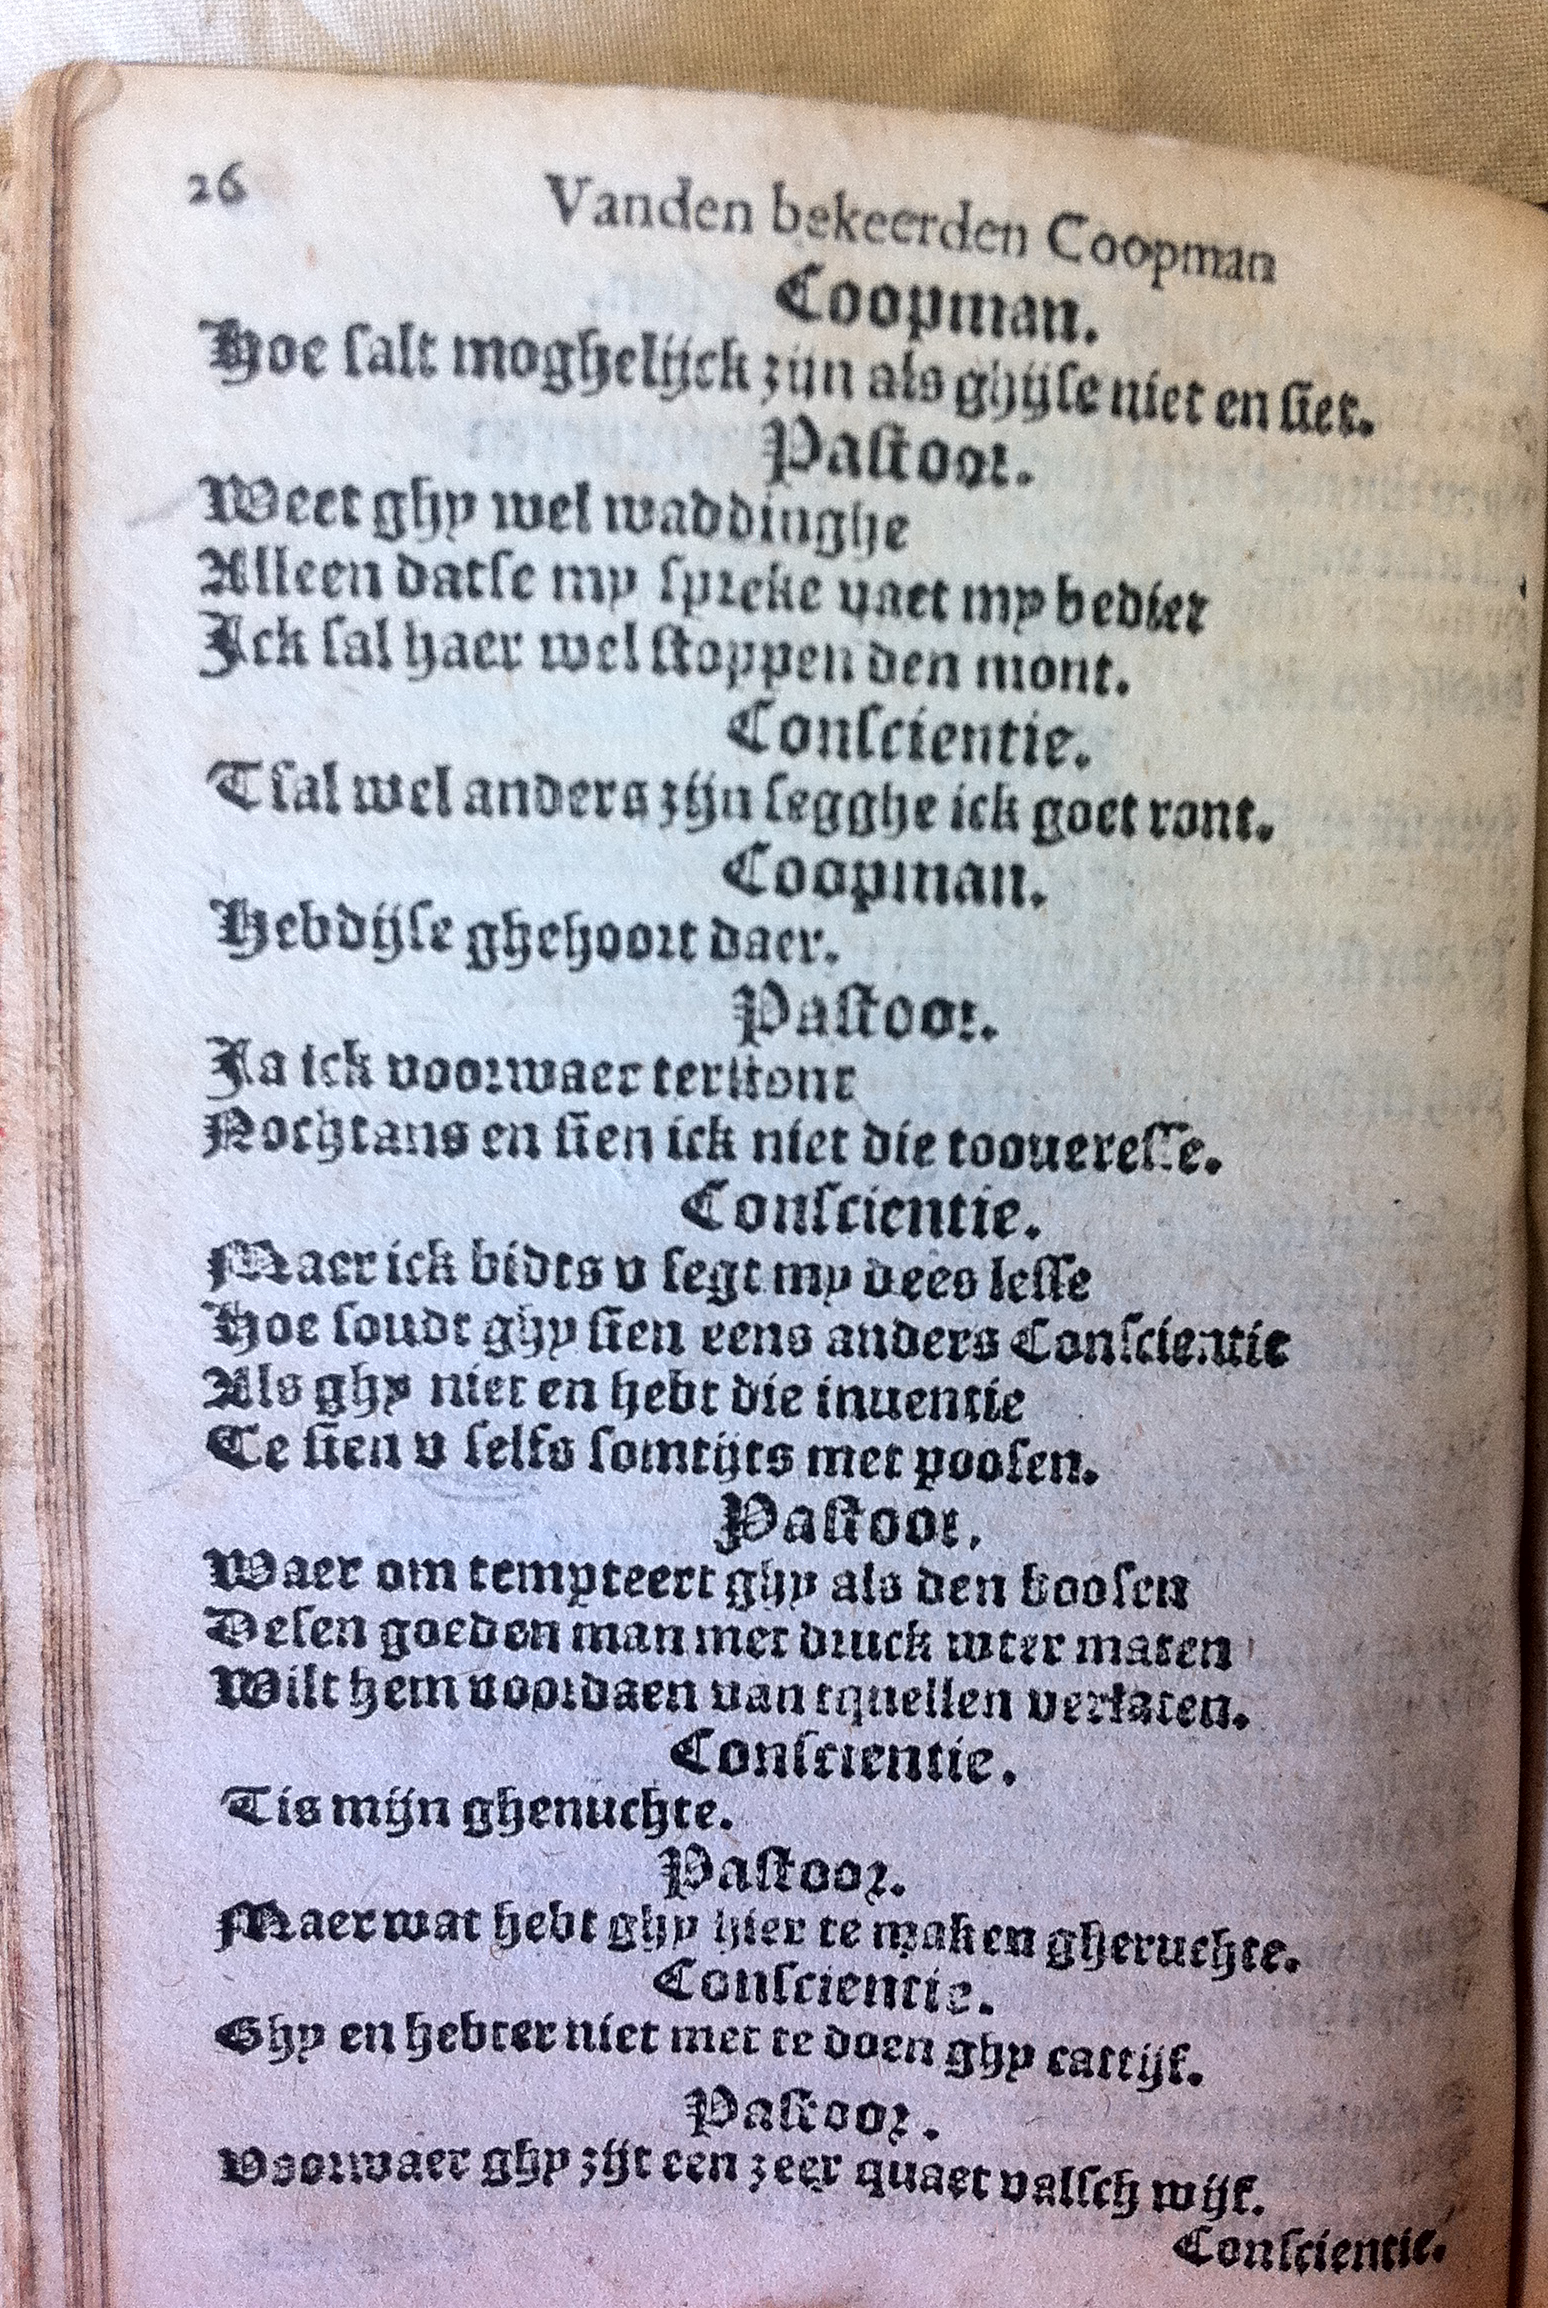 26 Vanden bekeerden Coopman
Coopman.
Hoe salt moghelijck zijn als ghijse niet en siet.
Pastoor.
Weet ghy wel waddinghe
Alleen datse my spreke yaet my bediet
Ick sal haer wel stoppen den mont.
Conscientie.
Tsal wel anders zijn segghe ick goet ront.
Coopman.
Hebdijse ghehoort daer.
Pastoor.
Ja ick voorwaer terstont
Nochtans en sien ick niet die tooueresse.
Conscientie.
Maer ick bidts v segt my dees lesse
Hoe soudt ghy sien eens anders Conscientie
Als ghy niet en hebt die inuentie
Te sien v selfs somtijts met poosen.
Pastoor.
Waer om tempteert ghy als den boosen
Desen goeden man met druck wter maten
Wilt hem voordaen van tquellen verlaten.
Conscientie.
Tis mijn ghenuchte.
Pastoor.
Maer wat hebt ghy hier te maken gheruchte.
Conscientie.
Ghy en hebter niet met te doen ghy cattijf.
Pastoor.
Voorwaer ghy zijt een zeer quaet valsch wijf.
Conscientie.